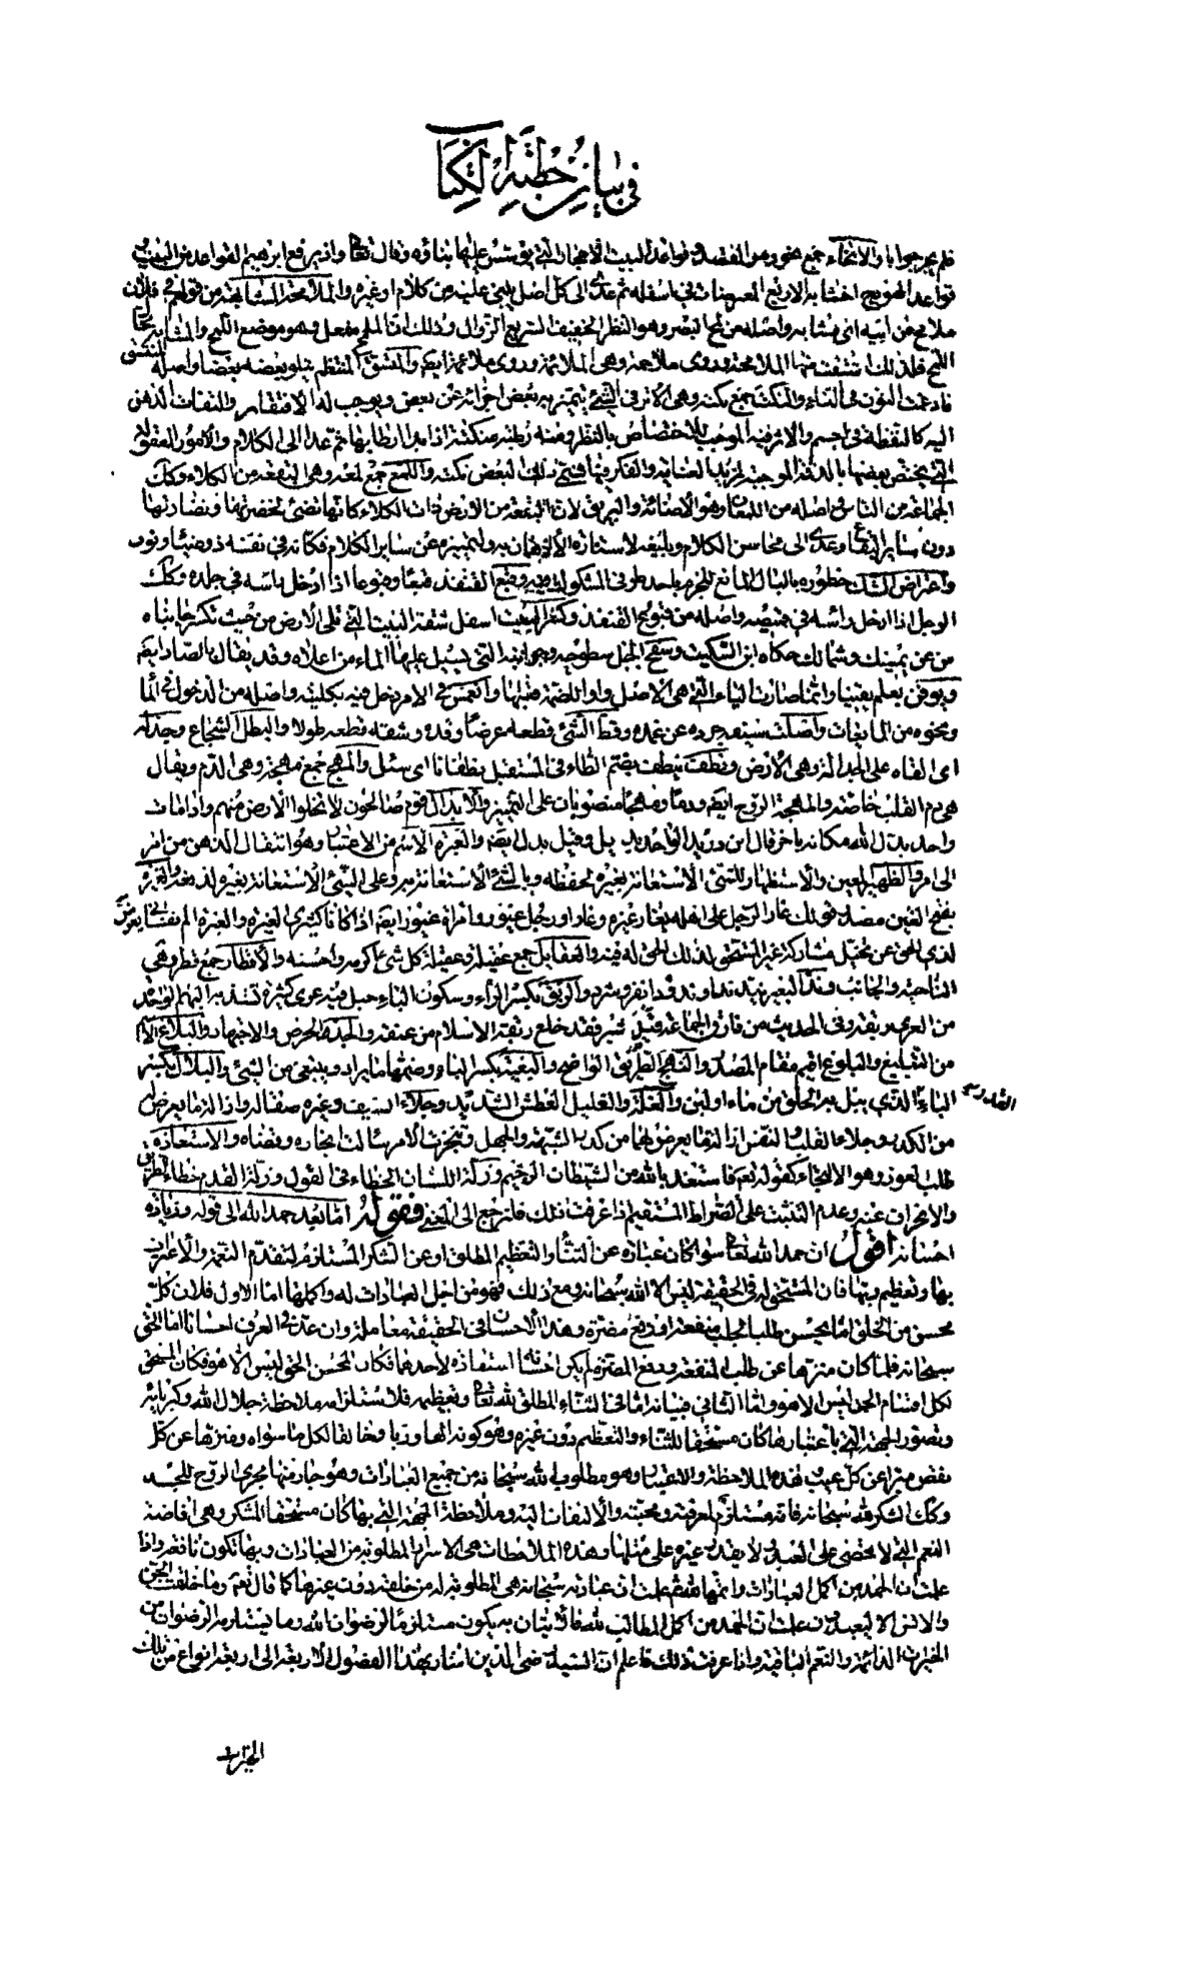 في بيان خطبة الكتاب
فلم يجر جوابا والانحاء جمع نحو وهو القصد وقواعد البيت الاحجار التي يؤسس عليها بناؤه وقال تعالى واذ يرفع ابرهيم القواعد من البيت
قواعد الهودج اخشابه الاربع المعرضات في اسفله ثم عدى الى كل اصل يبنى عليه من كلام او غيره والملامحة المشابهة من قولهم في فلان
ملامح من ابيه اي مشابه واصله من لمح البصر وهو النظر الخفيف السريع الزوال وذلك ان الملمح مفعل وهو موضع اللمح والمشابه محال
اللمح فلذلك اشتقت منها الملامحة وروى ملاحمة وهي الملائمة وروى ملائمة ايضا والمتسق المنتظم يتلو بعضه بعضا واصله
فادغمت في التاء والنكت جمع نكتة وهي الاثر في الشيء يتميز به بعض اجزائه عن بعض ويوجب له الافتقار والتفات الذهن
اليه كالنقطة في الجسم والاثر فيه الموجب للاختصاص بالنظر ومنه رطبة منكتة اذا بدا ارطابها ثم عدى الى الكلام والامور المعقولة
التي يختص بعضها بالدقة الموجبة لمزيد العناية والفكر فيها فسمى ذلك البعض نكتة واللمع جمع لمعة وهي البقعة من الكلاء وكك
الجماعة من الناس واصله من اللمعان وهو الاضائة والبريق لان البقعة من الارض ذات الكلاء كانها تضئ لخضرتها ونضارتها
دون سائر البقاع وعدى الى محاسن الكلام وبليغه لاستنارة الاذهان به ولتميزه عن ساير الكلام فكانه في نفسه ذو ضياء ونور
واعتراض الشك خطوره بالبال المانع للجزم باحد طرفي المشكوك فيه وقبع القنفذ قبعا وقبوعا اذا ادخل راسه في جلده وكك
الرجل اذا ادخل راسه في قميصه واصله من قبوع القنفذ وكسر البيت اسفل شقة البيت التي تلي الارض من حيث تكسر جانباه
من عن يمينك وشمالك حكاه ابن السكيت وسفح الجبل سطوحه وجوانبه التي يسيل عليها الماء من اعلاه وقد يقال بالصاد ايضا
ويوقن يعلم يقينا وانما صارت الياء التي هي الاصل واوا للضمة قبلها وانغمس في الامر دخل فيه بكليته واصله من الدخول في الماء
ونحوه من المايعات واصلت سيفه جرده عن غمده وقط الشيء قطعه عرضا وقده وشقه قطعه طولا والبطل الشجاع وجدله
اي القاه على الجدالة وهي الارض ونطف ينطف بضم الطاء في المستقبل نطفانا اي سال والمهج جمع مهجة وهي الدم ويقال
هي دم القلب خاصة والمهجة الروح ايضا ودما ومهجا منصوبات على التميز والابدال قوم صالحون لا تخلوا الارض منهم واذا مات
واحد بدل الله مكانه باخر قال ابن دريد الواحد بديل وقيل بدل ايضا والعبرة الاسم من الاعتبار وهو انتقال الذهن من امر
الى امر والظهير المعين والاستظهار للشيء الاستعانة بغيره لحفظه وبالشيء الاستعانة به وعلى الشيء الاستعانة بغيره لدفعه والغيرة
بفتح الغين مصدر قولك غار الرجل على اهله يغار غيرة وغارا ورجل غيور وامراة غيور ايضا اذا كانا كثيري الغيرة والغيرة الم نفسانى يعرض
لذي الحق عن تخيل مشاركة غير المستحق لذلك الحق له فيه والعقايل جمع عقيلة وعقيلة كل شيء اكرمه واحسنه والاقطار جمع قطر وهي
الناحية والجانب وند البعير يند ندا وندودا نفر وشرد والربق بكسر الراء وسكون الباء حبل فيه عرى كثيرة تشد به البهم الواحدة
من العرى ربقة وفي الحديث من فارق الجماعة قيد شبر فقد خلع ربقة الاسلام من عنقه والجد الحرص والاجتهاد والبلاغ الاسم
من التبليغ والبلوغ اقيم مقام المصدر والنهج الطريق الواضح والبغية بكسر الباء وضمها ما يراد ويبتغى من الشيء والبلال بكسر
الباء الذي يبل به الحلق من ماء او لبن والغلة والغليل العطش الشديد وجلاء السيف وغيره صقاله واذالة ما يعرض له
من الكدر وجلاء القلب النفس ازالة ما يعرض لهما من كدر الشبهة والجهل وتنجزت الامر سالت انجازه وقضاه والاستعاذة
طلب العوذ وهو الالتجاء كقوله تعالى فاستعذ بالله من الشيطان الرجيم وزلة اللسان الخطاء في القول وزلة القدم خطاء الطريق
والانحراف عنه وعدم التثبت على الصراط المستقيم اذا عرفت ذلك فلنرجع الى المعنى فقوله اما بعد حمد الله الى قوله وزيادة
احسانه اقول ان حمد الله تعالى سواء كان عبارة عن الثناء والتعظيم المطلق او عن الشكر المستلزم لتقدم النعمة والاعتراف
بها وتعظيم ربها فان المستحق له في الحقيقة ليس الا الله سبحانه ومع ذلك فهو من اجل العبادات له واكملها اما الاول فلان كل
محسن من الخلق انما يحسن طلبا لجلب منفعة او دفع مضرة وهذا الاحسان في الحقيقة معاملة وان عد في العرف احسانا اما الحق
سبحانه فلما كان منزها عن طلب المنفعة ودفع المضرة لم يكن احسانه استفادة لاحدهما فكان المحسن الحق ليس الا هو فكان المستحق
لكل اقسام الحمد ليس الا هو واما الثاني فبيانه اما في الثناء المطلق لله تعالى وتعظيمه فلاستلزامه ملاحظة جلال الله وكبريائه
وتصور الجهة التي باعتبارها كان مستحقا للثناء والتعظيم دون غيره وهو كونه الها وربا وخالقا لكل ما سواه ومنزها عن كل
نقص مبرا عن كل عيب وهذه الملاحظة والاعتبار وهو مطلوب الله سبحانه من جميع العبادات وهو جار منها مجرى الروح للجسد
وكك الشكر لله سبحانه فانه مستلزم لمعرفته ومحبته والالتفات اليه وملاحظة الجهة التي بها كان مستحقا للشكر وهي افاضة
النعم التي لا تحصى على العبد ولا يقدر غيره على مثلها وهذه الملاحظات هي الاسرار المطلوبة من العبادات وبها تكون نافعة واذا
علمت ان الحمد من اكمل العبادات واتمها لله ثم علمت ان عبادته سبحانه هي المطلوبة له من خلقه دون غيرها كما قال تعالى وما خلقت الجن
والانس الا ليعبدون علمت ان الحمد من اكمل المطالب لله فالاتيان به يكون مستلزما لرضوان الله وما يستلزمه الرضوان من
الخيرات الدائمة والنعم الباقية واذا عرفت ذلك فاعلم ان السيد رضي الله اشار بهذا الفصول الاربعة الى اربعة انواع من تلك
الخيرات